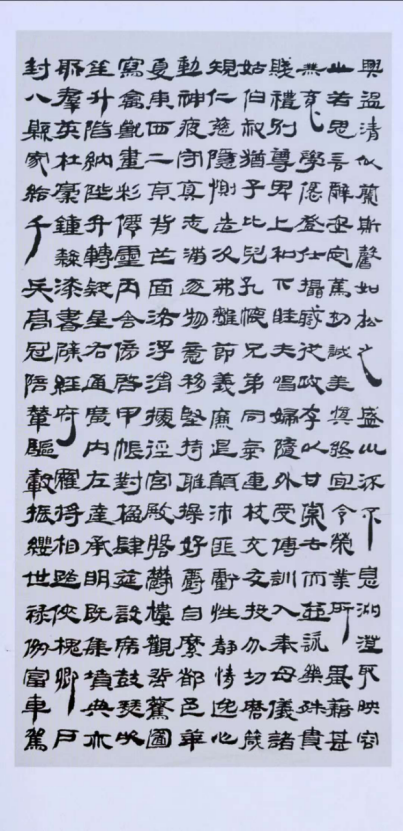 興溫清似蘭斯馨如松之盛川流不息淵澄取映容
止若思言辭安定篤初誠美慎終宜令榮業所基藉甚
無竟學優登仕攝職從政存以甘棠去而益詠樂殊貴
賤禮別尊卑上和下睦夫唱婦隨外受傅訓入奉母儀諸
姑伯叔猶子比兒孔懷兄弟同氣連枝交友投分切磨箴
規仁慈隱惻造次弗離節義廉退顛沛匪虧性靜情逸心
動神疲守真志滿逐物意移堅持雅操好爵自縻都邑華
夏東西二京背芒面洛浮渭據徑宮殿盤鬱樓觀飛驚圖
寫禽獸畫彩僊靈丙舍傍啓甲帳對楹肆筵設席鼓瑟吹
笙升階納陛弁轉疑星右通廣內左達承明既集墳典亦
聚羣英杜稾鍾隸漆書壁經府羅將相路俠槐卿戶
封八縣家給千兵高冠陪輦驅轂振纓世祿侈富車駕